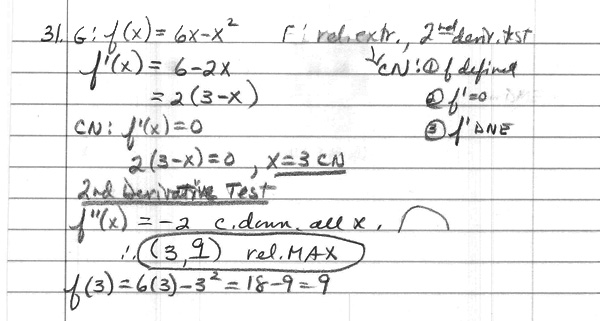 31. G: f(x) = 6x-x² F: rel. extr., 2nd deriv. test
f'(x) = 6-2x CN: ① f defined
= 2(3-x) ② f'=0
CN: f'(x)=0 ③ f' DNE
2(3-x)=0, x=3 CN
2nd Derivative Test
f''(x) = -2 c. down. all x.
∴ (3,9) rel. MAX
f(3)=6(3)-3²=18-9=9